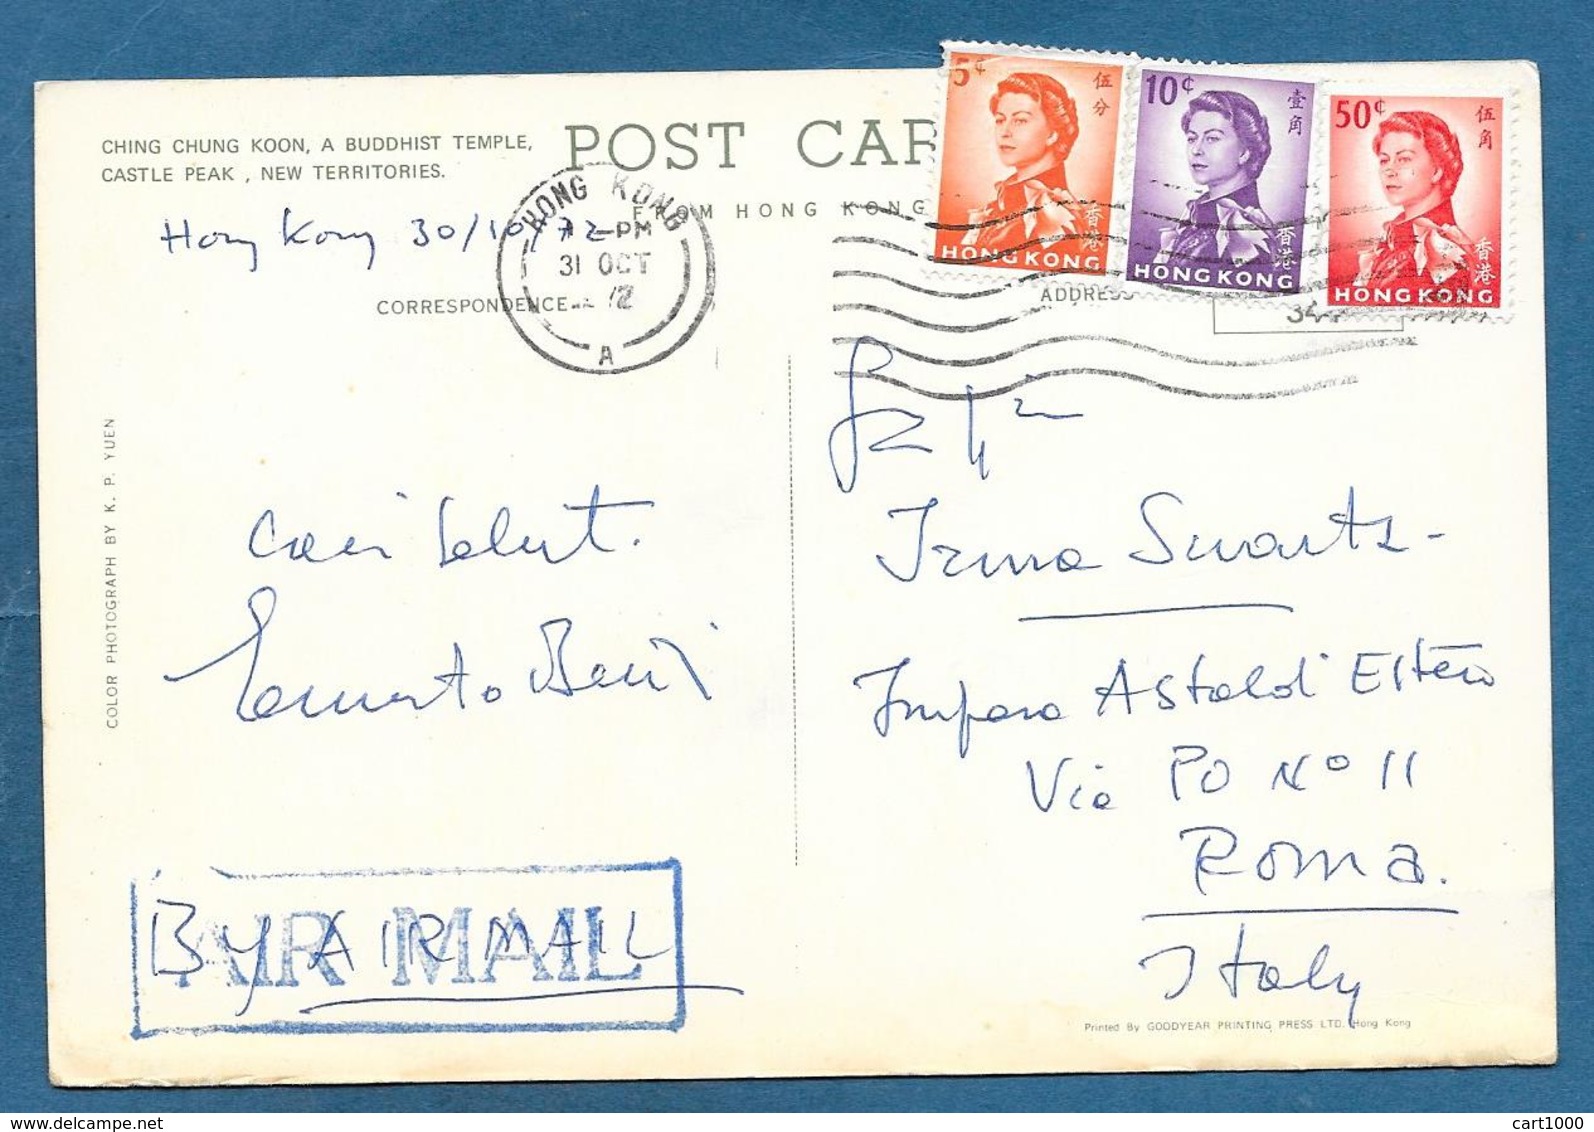 CHING CHUNG KOON, A BUDDHIST TEMPLE,
CASTLE PEAK , NEW TERRITORIES.
POST CAR
FROM HONG KONG
5¢
伍分
香港
HONG KONG
10¢
壹角
香港
HONG KONG
50¢
伍角
香港
HONG KONG
Hong Kong 30/10/72
HONG KONG
PM
31 OCT
72
A
CORRESPONDENCE
ADDRESS
34
COLOR PHOTOGRAPH BY K. P. YUEN
Cari Salut.
Ernesto
Irma Swarts-
Impera Astaldi Estero
Via PO N° 11
Roma.
Italy
AIR MAIL
BY AIR MAIL
Printed By GOODYEAR PRINTING PRESS LTD. Hong Kong
cart1000